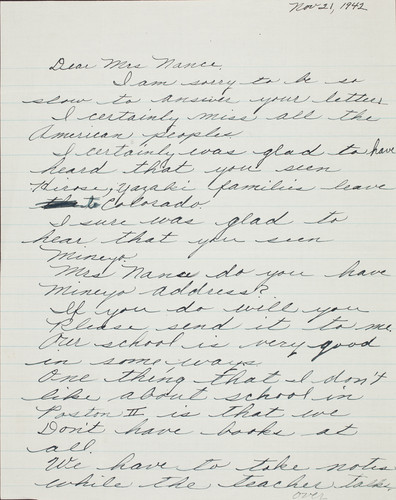 Nov 21, 1942
Dear Mrs Nance.
I am sorry to be so
slow to answer your letter
I certainly miss all the
American peoples
I certainly was glad to have
heard that you seen
Hirose, Yazaki families leave
to Colorado.
I sure was glad to
hear that you seen
Mineyo.
Mrs Nance do you have
Mineyo address?
If you do will you
Please send it to me.
Our school is very good
in some ways.
One thing that I don't
like about school in
Poston II is that we
Don't have books at
all.
We have to take notes
while the teacher talks
over